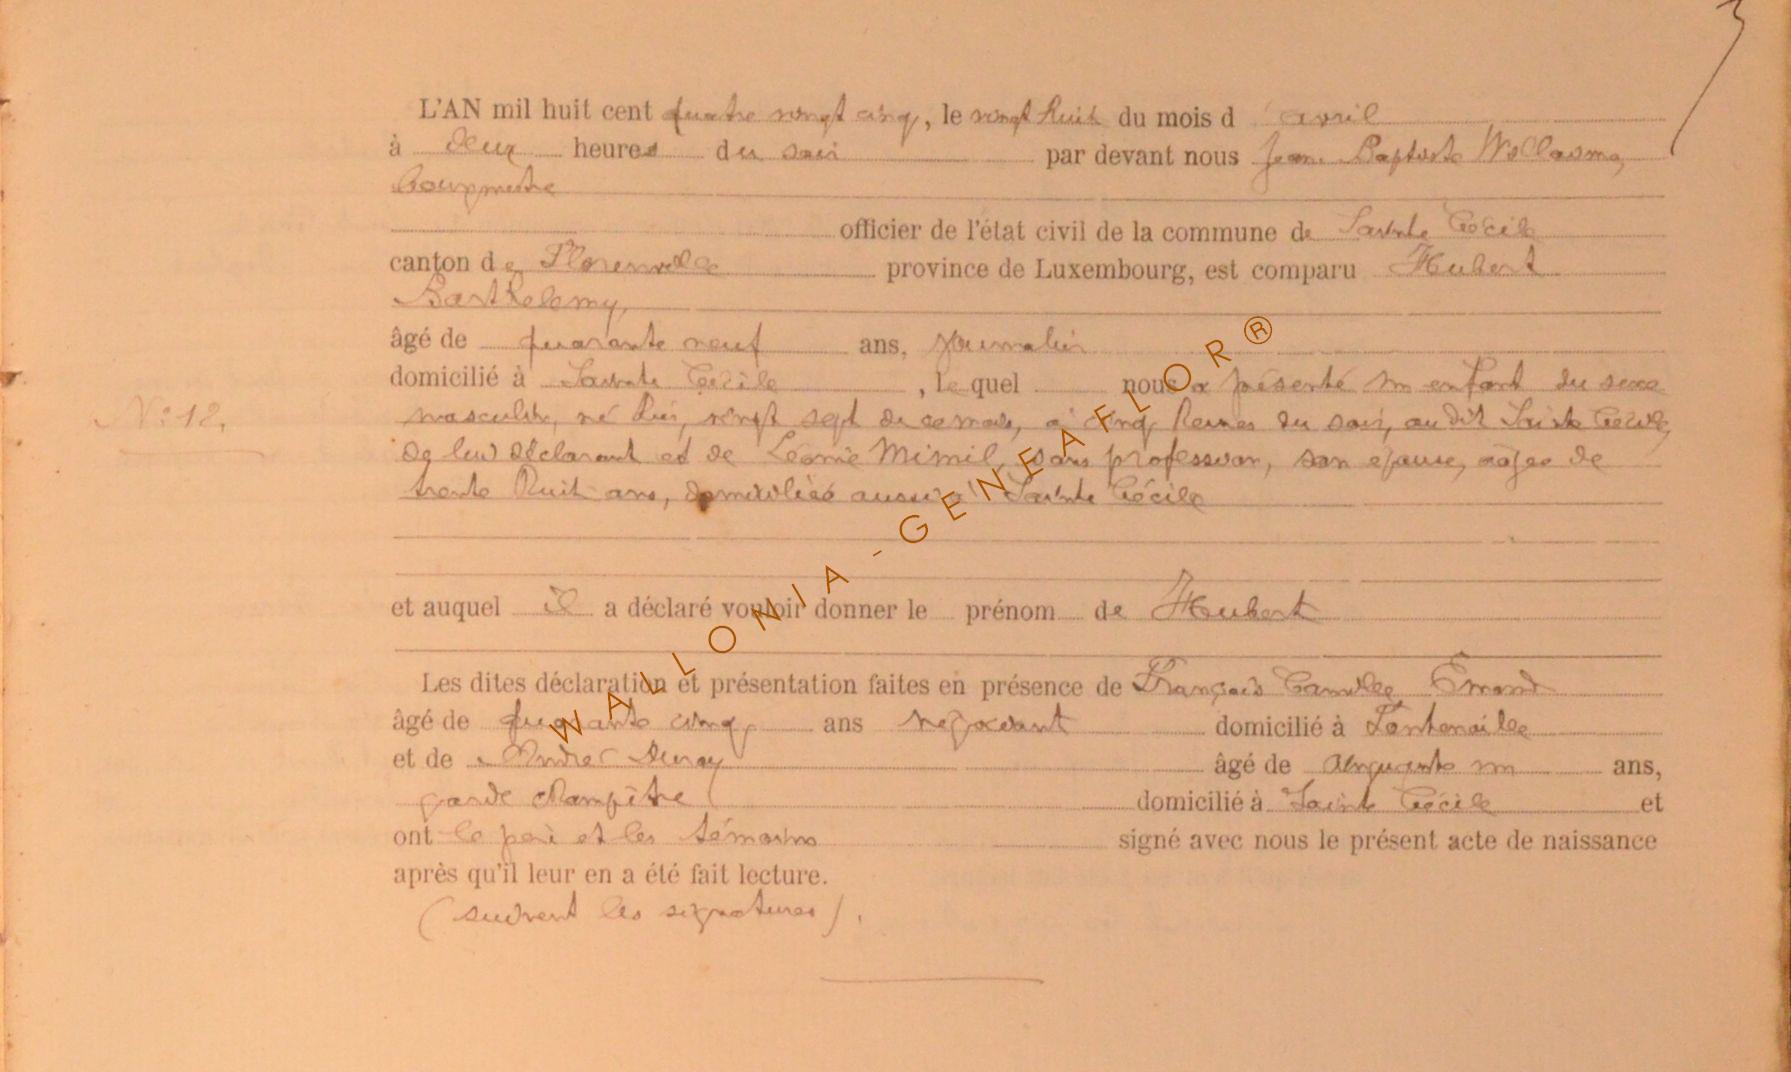 3
L'AN mil huit cent quatre vingt cinq, le vingt huit du mois d avril
à deux heures du soir par devant nous Jean Baptiste
bourgmestre
officier de l'état civil de la commune de Sainte Cécile
canton de Florenville province de Luxembourg, est comparu Hubert
Barthelemy,
âgé de quarante neuf ans, journalier
domicilié à Sainte Cécile, le quel nous a présenté un enfant du sexe
N° 12. masculin, né hier, vingt sept de ce mois, à cinq heures du soir, au dit Sainte Cécile,
de lui déclarant et de Léonie Mimil, sans profession, son épouse, âgée de
trente huit ans, domiciliée aussi à Sainte Cécile
et auquel il a déclaré vouloir donner le prénom de Hubert
Les dites déclaration et présentation faites en présence de François Camille Emond
âgé de quarante cinq ans négociant domicilié à Fontenaille
et de André Duray âgé de cinquante un ans,
garde champêtre domicilié à Sainte Cécile et
ont le père et les témoins signé avec nous le présent acte de naissance
après qu'il leur en a été fait lecture.
(suivent les signatures).
WALLONIA-GENEAFLOR®